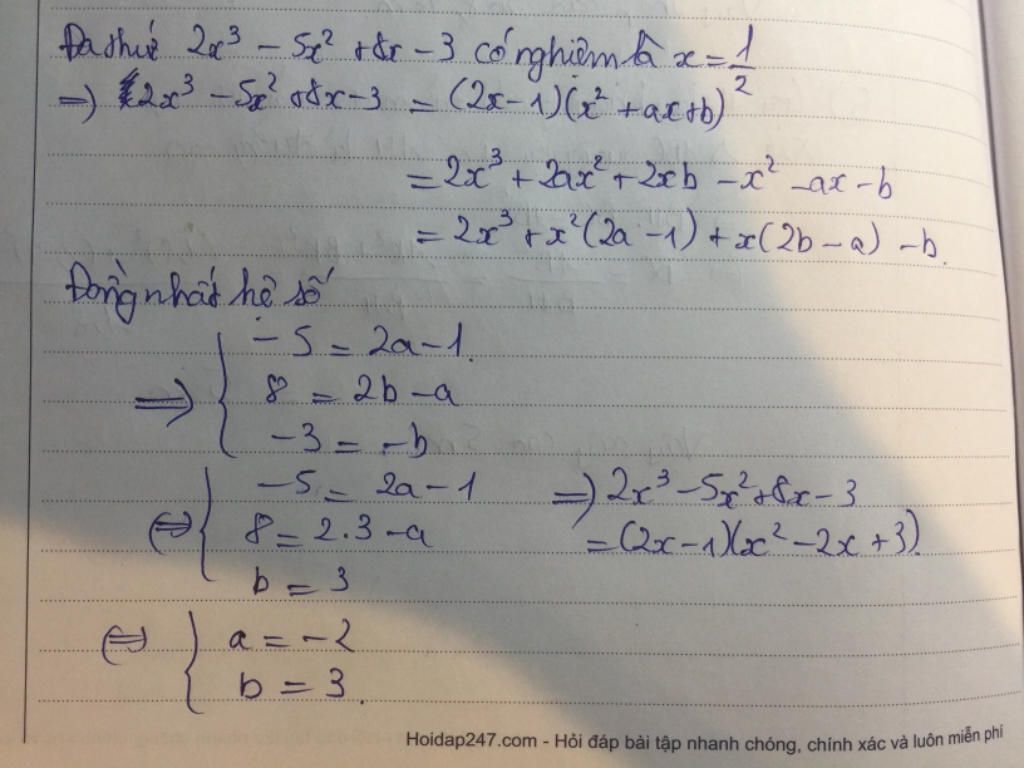 Đa thức 2x³ - 5x² + 8x - 3 có nghiệm là x = 1/2
=> 2x³ - 5x² + 8x - 3 = (2x - 1)(x² + ax + b)
= 2x³ + 2ax² + 2xb - x² - ax - b
= 2x³ + x²(2a - 1) + x(2b - a) - b.
Đồng nhất hệ số
- 5 = 2a - 1.
=> { 8 = 2b - a
- 3 = - b
- 5 = 2a - 1
<=> { 8 = 2.3 - a
b = 3
=> 2x³ - 5x² + 8x - 3
= (2x - 1)(x² - 2x + 3).
<=> { a = -2
b = 3.
Hoidap247.com - Hỏi đáp bài tập nhanh chóng, chính xác và luôn miễn phí